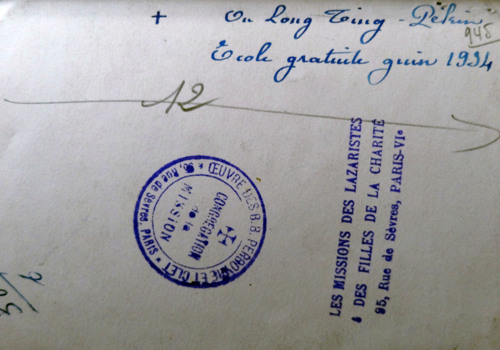 + Ou Long Ting - Pékin
945
Ecole gratuite juin 1934
12
LES MISSIONS DES LAZARISTES
& DES FILLES DE LA CHARITÉ
95, Rue de Sèvres, PARIS-VIe
* ŒUVRE DES B.B. PERBOYRE ET CLET *
95, Rue de Sèvres, PARIS
CONGRÉGATION
de la
MISSION